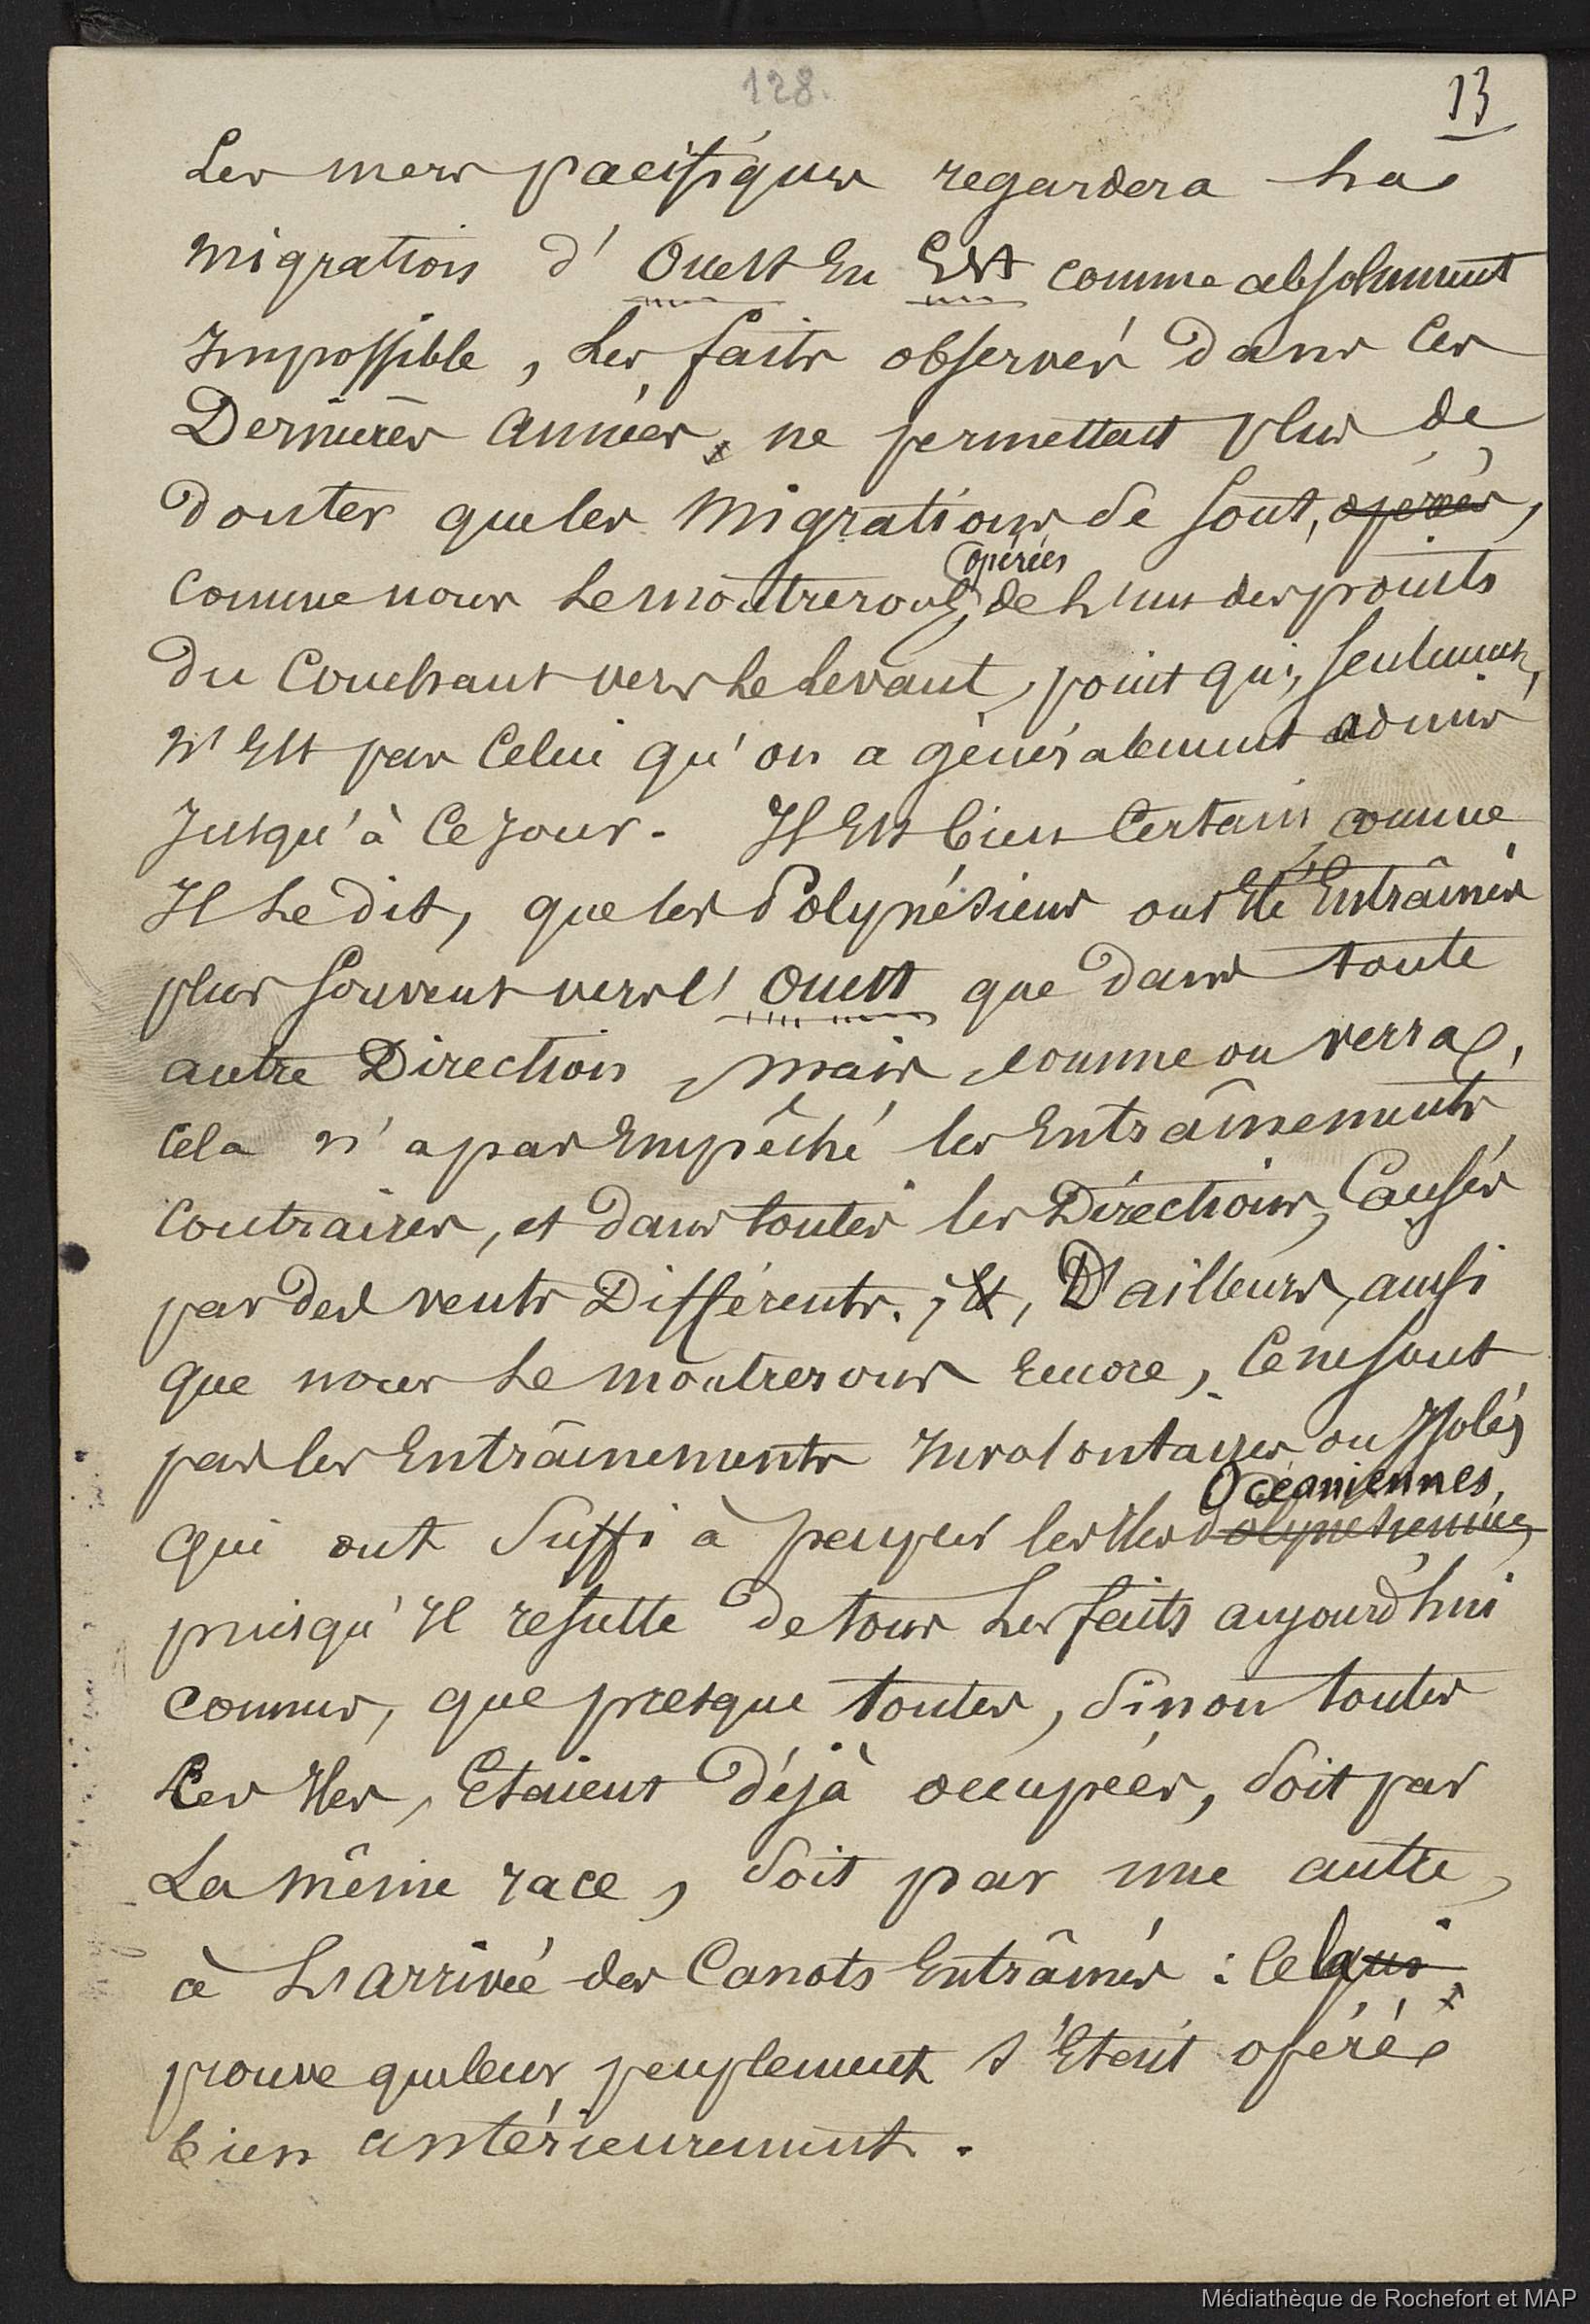 128.
13
Les mers pacifiques regardera la
migration d'Ouest en Est comme absolument
Impossible, les faits observés dans ces
Dernières années, ne permettent plus de
douter que les migrations se sont, opérées,
opérées
comme nous le montrerons, de l'un des points
du Couchant vers le levant, point qui, seulement,
n'Est pas Celui qu'on a généralement admis
Jusqu'à Ce Jour. Il Est bien Certain, comme
Il le dit, que les Polynésiens ont été Entraînés
plus souvent vers l'Ouest que dans toute
autre Direction, mais, comme on verra,
Cela n'a pas Empêché les Entraînements
Contraires, et dans toutes les Directions, Causés
par des vents Différents. Et, D'ailleurs, aussi
que nous le montrerons Encore, Ce ne sont
pas les Entraînements Involontaires ou Isolés
Océaniennes,
qui ont suffi à peupler les Iles Polynésiennes,
puisqu'Il résulte de tous les faits aujourd'hui
connus, que presque toutes, sinon toutes
Ces Iles, Etaient Déjà occupées, soit par
La même race, soit par une autre,
à L'arrivée des Canots Entraînés : Cela qui
prouve que leur peuplement s'Etait opéré
bien antérieurement.
Médiathèque de Rochefort et MAP